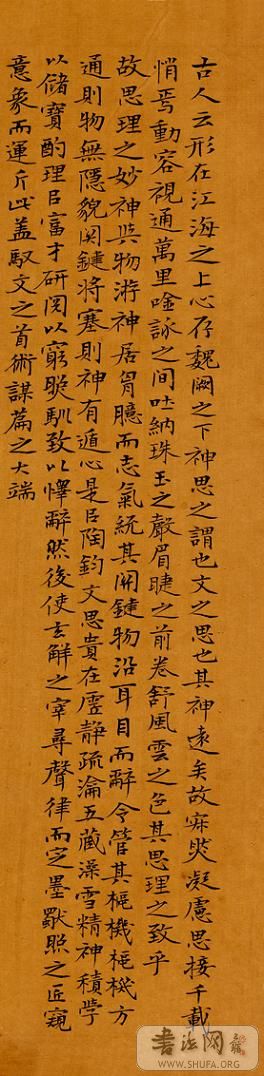 古人云形在江海之上心存魏闕之下神思之謂也文之思也其神遠矣故寂焉凝慮思接千載
悄焉動容視通萬里唫詠之間吐納珠玉之聲眉睫之前卷舒風雲之色其思理之致乎
故思理之妙神與物游神居胷臆而志氣統其關鍵物沿耳目而辭令管其樞機樞機方
通則物無隱貌関鍵将塞則神有遁心是㠯陶鈞文思貴在虛静疏瀹五藏澡雪精神積學
以儲寶酌理㠯富才研閱以窮照馴致以懌辭然後使玄解之宰尋聲律而定墨獸照之匠窺
意象而運斤此蓋馭文之首術謀篇之大端
書法网
WWW.SHUFA.ORG